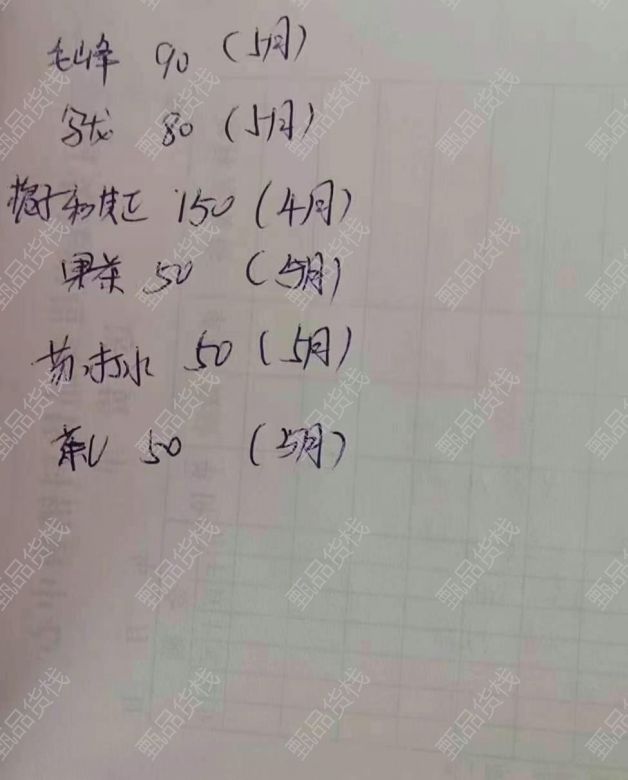 毛峰 90 (5月)
乌龙 80 (5月)
150 (4月)
果茶 50 (5月)
苏打水 50 (5月)
50 (5月)
甄品货栈